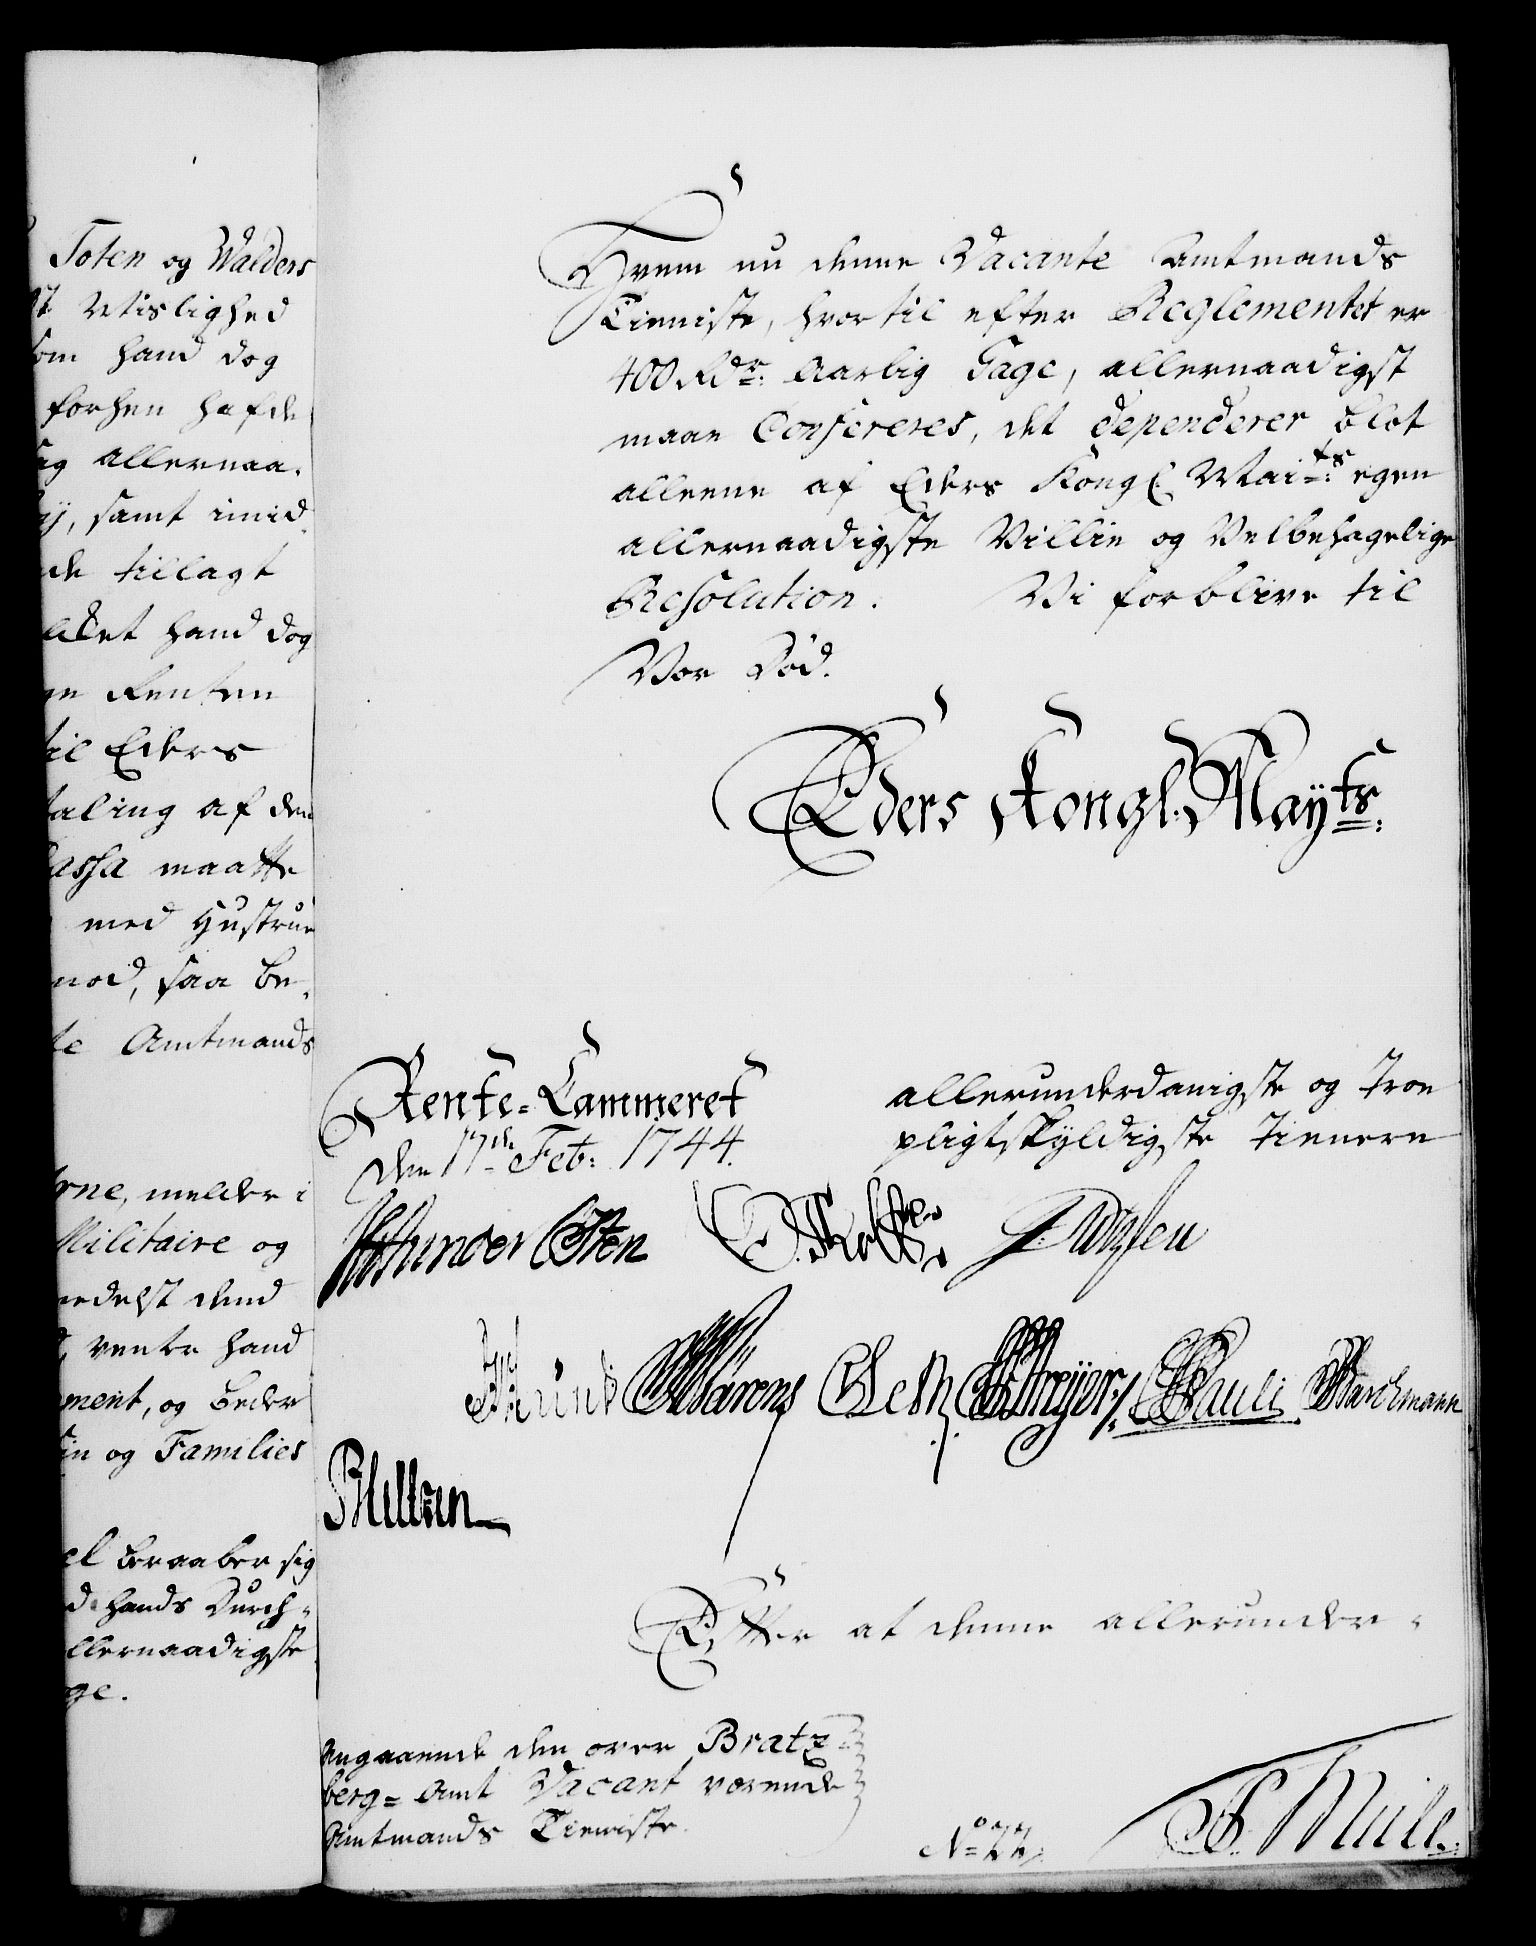 Toten og Walders
Vtislighed
som hand dog
forhen hafde
allernaa-
samt imid-
tillagt
hand dog
Renten
til Eders
taling af den
Cassa maatte
med Hustrue
saa be-
Amtmands
melder i
Militaire og
medelst dend
venter hand
og beder
og Families
beraaber sig
hands Durch-
allernaadigste
Hvem nu denne Vacante Amtmands
Tieniste, hvortil efter Reglementet er
400 Rdr: Aarlig Gage, allernaadigst
maae Confereres, det dependerer blot
alleene af Eders Kongl Maits: egen
allernaadigste Villie og Velbehagelige
Resolution. Vi forblive til
Vor Død.
Eders Kongl. Mayts:
Rente-Cammeret
den 17de Feb: 1744.
allerunderdanigste og troe
pligtskyldigste tienere
von der Osten
Pauli
Efter at denne allerunder-
Angaaende den over Bratz-
berg-Amt Vacant værende
Amtmands Tieniste.
No 22.